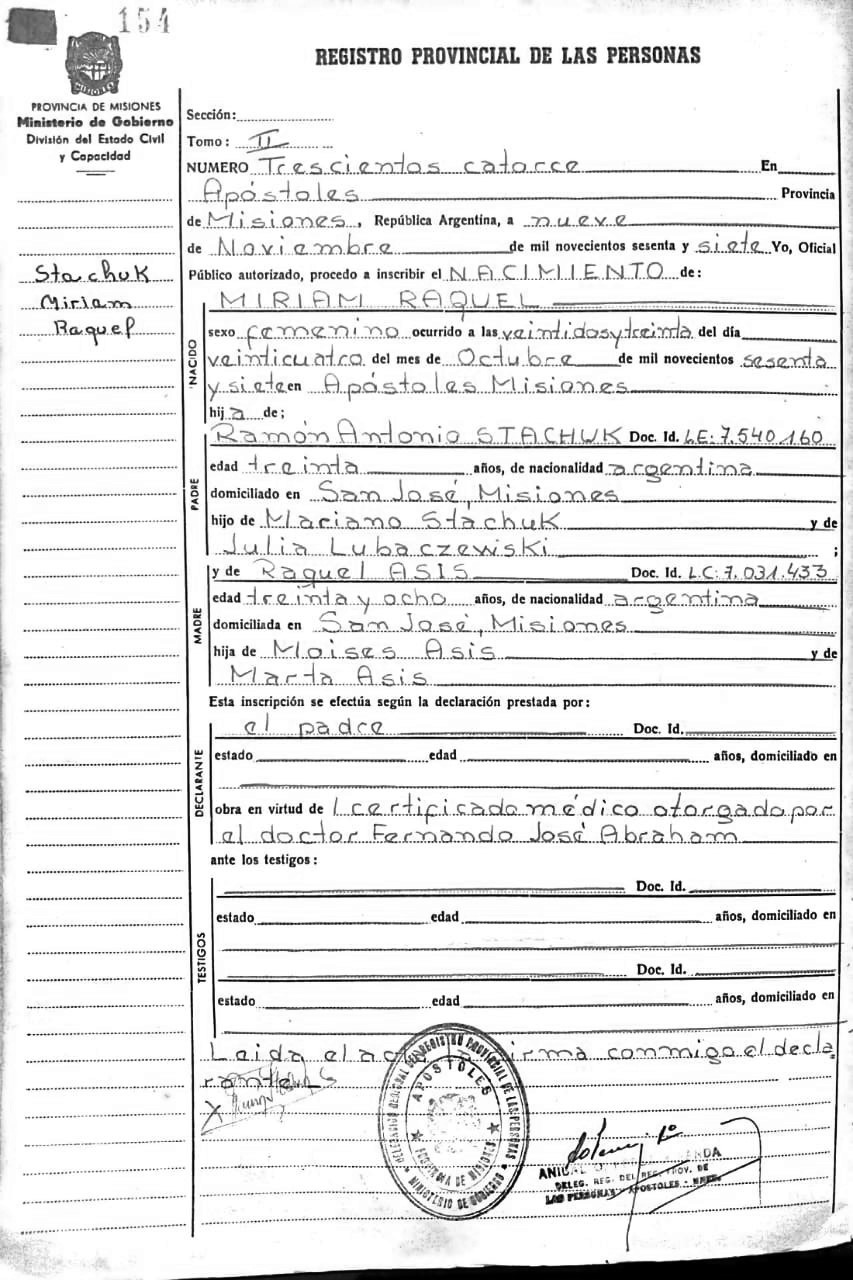 154
REGISTRO PROVINCIAL DE LAS PERSONAS
MISIONES
PROVINCIA DE MISIONES
Ministerio de Gobierno
División del Estado Civil
y Capacidad
Stachuk
Miriam
Raquel
Sección:
Tomo: II
NUMERO Trescientos catorce En
Apóstoles Provincia
de Misiones, República Argentina, a nueve
de Noviembre de mil novecientos sesenta y siete Yo, Oficial
Público autorizado, procedo a inscribir el NACIMIENTO de:
NACIDO
MIRIAM RAQUEL
sexo femenino ocurrido a las veintidosytreinta del día
veinticuatro del mes de Octubre de mil novecientos sesenta
y siete en Apóstoles Misiones
hija de;
PADRE
Ramón Antonio STACHUK Doc. Id. LE: 7.540.160
edad treinta años, de nacionalidad argentina
domiciliado en San José, Misiones
hijo de Mariano Stachuk y de
Julia Lubaczewski ;
MADRE
y de Raquel ASIS Doc. Id. L.C: 7.031.433
edad treinta y ocho años, de nacionalidad argentina
domiciliada en San José, Misiones
hija de Moises Asis y de
Marta Asis
Esta inscripción se efectúa según la declaración prestada por:
DECLARANTE
el padre Doc. Id.
estado edad años, domiciliado en
obra en virtud de 1 certificado médico otorgado por
el doctor Fernando José Abraham
ante los testigos:
TESTIGOS
Doc. Id.
estado edad años, domiciliado en
Doc. Id.
estado edad años, domiciliado en
Leida el acta firma conmigo el decla
rante
X
DELEGACION REGIONAL DEL REGISTRO PROVINCIAL DE LAS PERSONAS
APOSTOLES
PROVINCIA DE MISIONES
MINISTERIO DE GOBIERNO
DELEG. REG. DEL REG. PROV. DE
LAS PERSONAS - APOSTOLES - MNES.